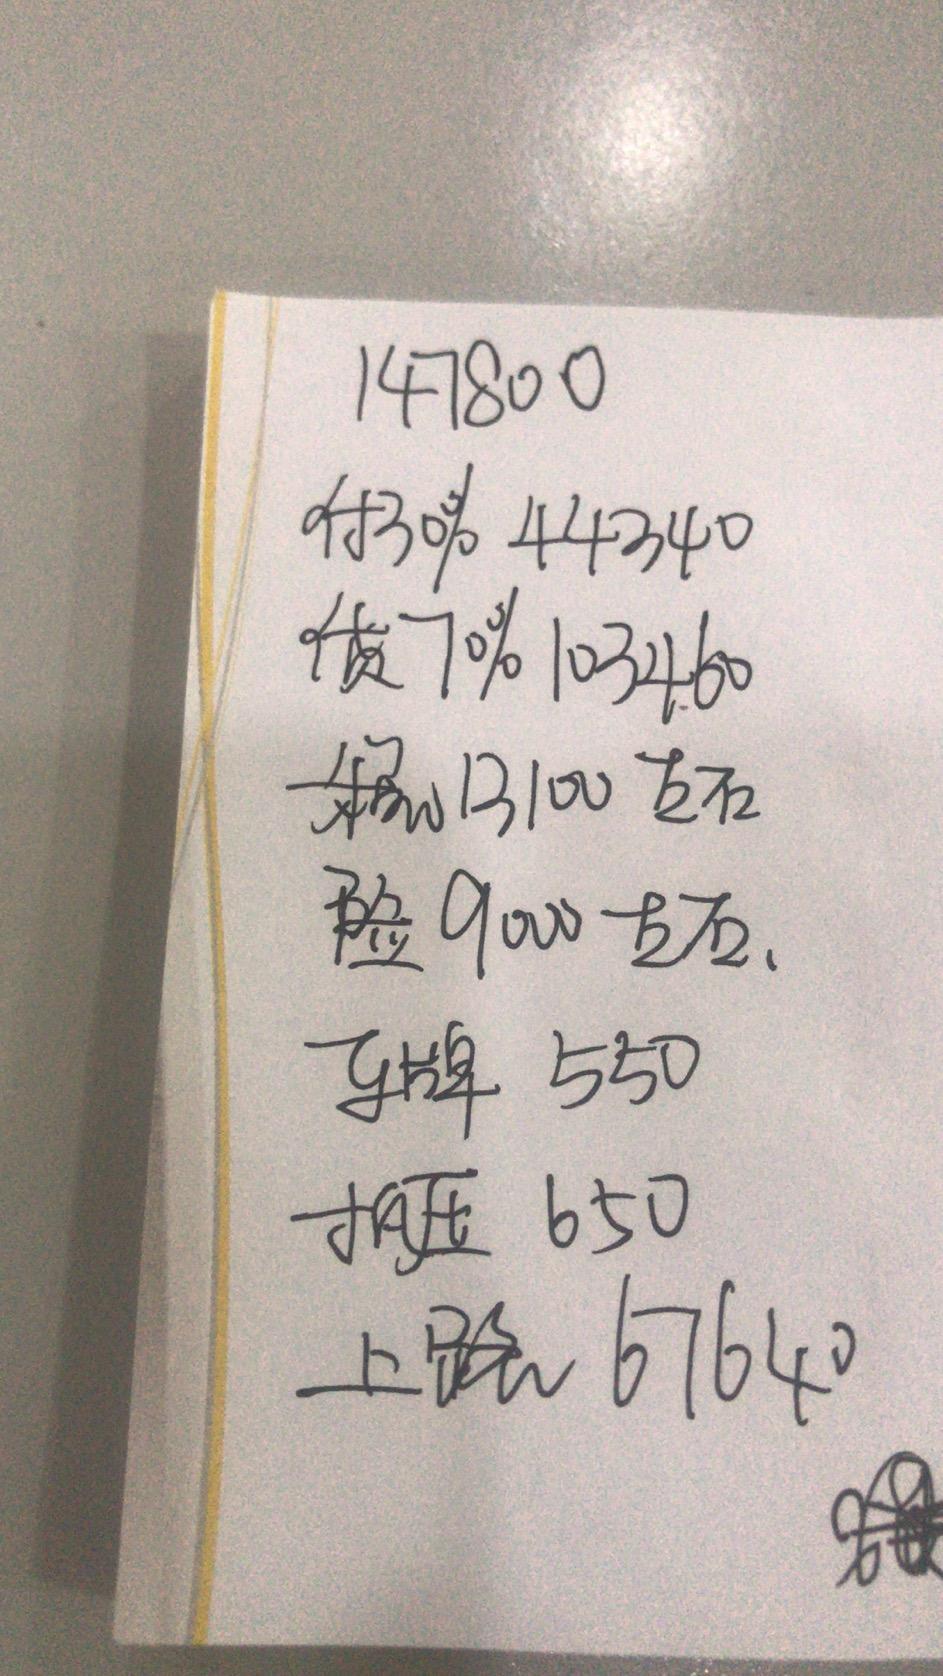 147800
付30% 44340
贷70% 103460
税 13100左右
险 9000左右、
车牌 550
抵压 650
上路 67640